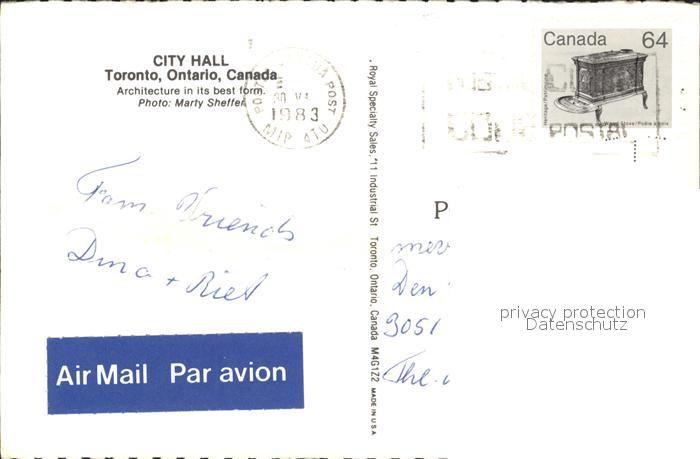 CITY HALL
Toronto, Ontario, Canada
Architecture in its best form.
Photo: Marty Sheffer
CANADA POST
30 VI
1983
M1P 4T0
From Friends
Dina + Riet
Air Mail Par avion
Royal Specialty Sales, 11 Industrial St Toronto, Ontario, Canada M4G1Z2 MADE IN U.S.A.
Canada 64
Wood Stove/Poêle à bois
POSTAL
P
Den
3051
The
privacy protection
Datenschutz